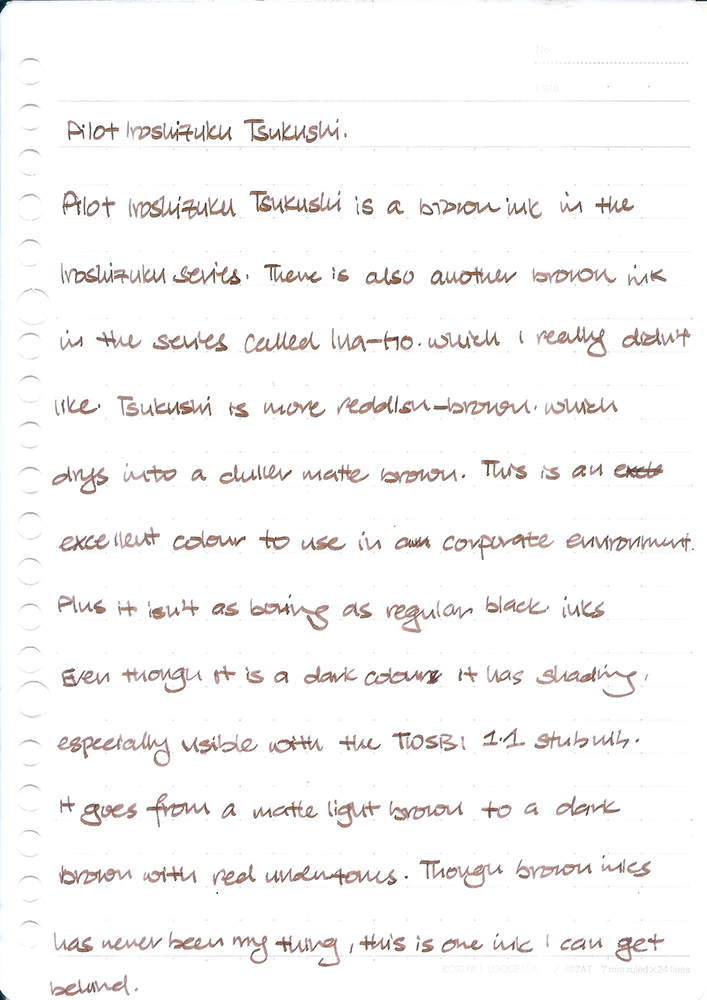 No.
Date
Pilot Iroshizuku Tsukushi.
Pilot Iroshizuku Tsukushi is a brown ink in the
Iroshizuku series. There is also another brown ink
in the series called Ina-ho. which I really didn't
like. Tsukushi is more reddish-brown. which
drys into a duller matte brown. This is an
excellent colour to use in corporate environment.
Plus it isn't as boring as regular black inks
Even though it is a dark colour it has shading,
especially visible with the TWSBI 1.1 stub nib.
It goes from a matte light brown to a dark
brown with red undertones. Though brown inks
has never been my thing, this is one ink I can get
behind.
KOKUYO LOOSE-LEAF 7 mm ruled×24 lines